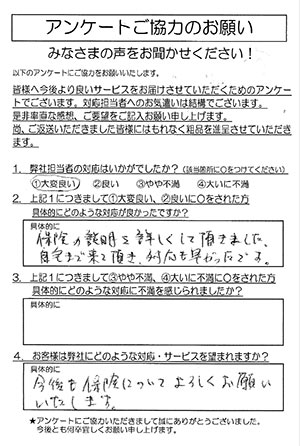 アンケートご協力のお願い
みなさまの声をお聞かせください！
以下のアンケートにご協力をお願いいたします。
皆様へ今後より良いサービスをお届けさせていただくためのアンケー
トでございます。対応担当者へのお気遣いは結構でございます。
是非率直な感想、ご要望をご記入お願い申し上げます。
尚、ご返送いただきました皆様にはもれなく粗品を進呈させていただき
ます。
1．弊社担当者の対応はいかがでしたか？（該当箇所に○をつけてください）
①大変良い ②良い ③やや不満 ④大いに不満
2．上記1につきまして①大変、②良いに○をされた方
具体的にどのような対応が良かったですか？
具体的に
保険の説明を詳しくして頂きました。
自宅まで来て頂き、対応も早かったです。
3．上記1につきまして③やや不満、④大いに不満に○をされた方
具体的にどのような対応に不満を感じられましたか？
具体的に
4．お客様は弊社にどのような対応・サービスを望まれますか？
具体的に
今後も保険についてよろしくお願い
いたします。
★アンケートにご協力いただきまして誠にありがとうございました。
今後とも何卒宜しくお願い申し上げます。